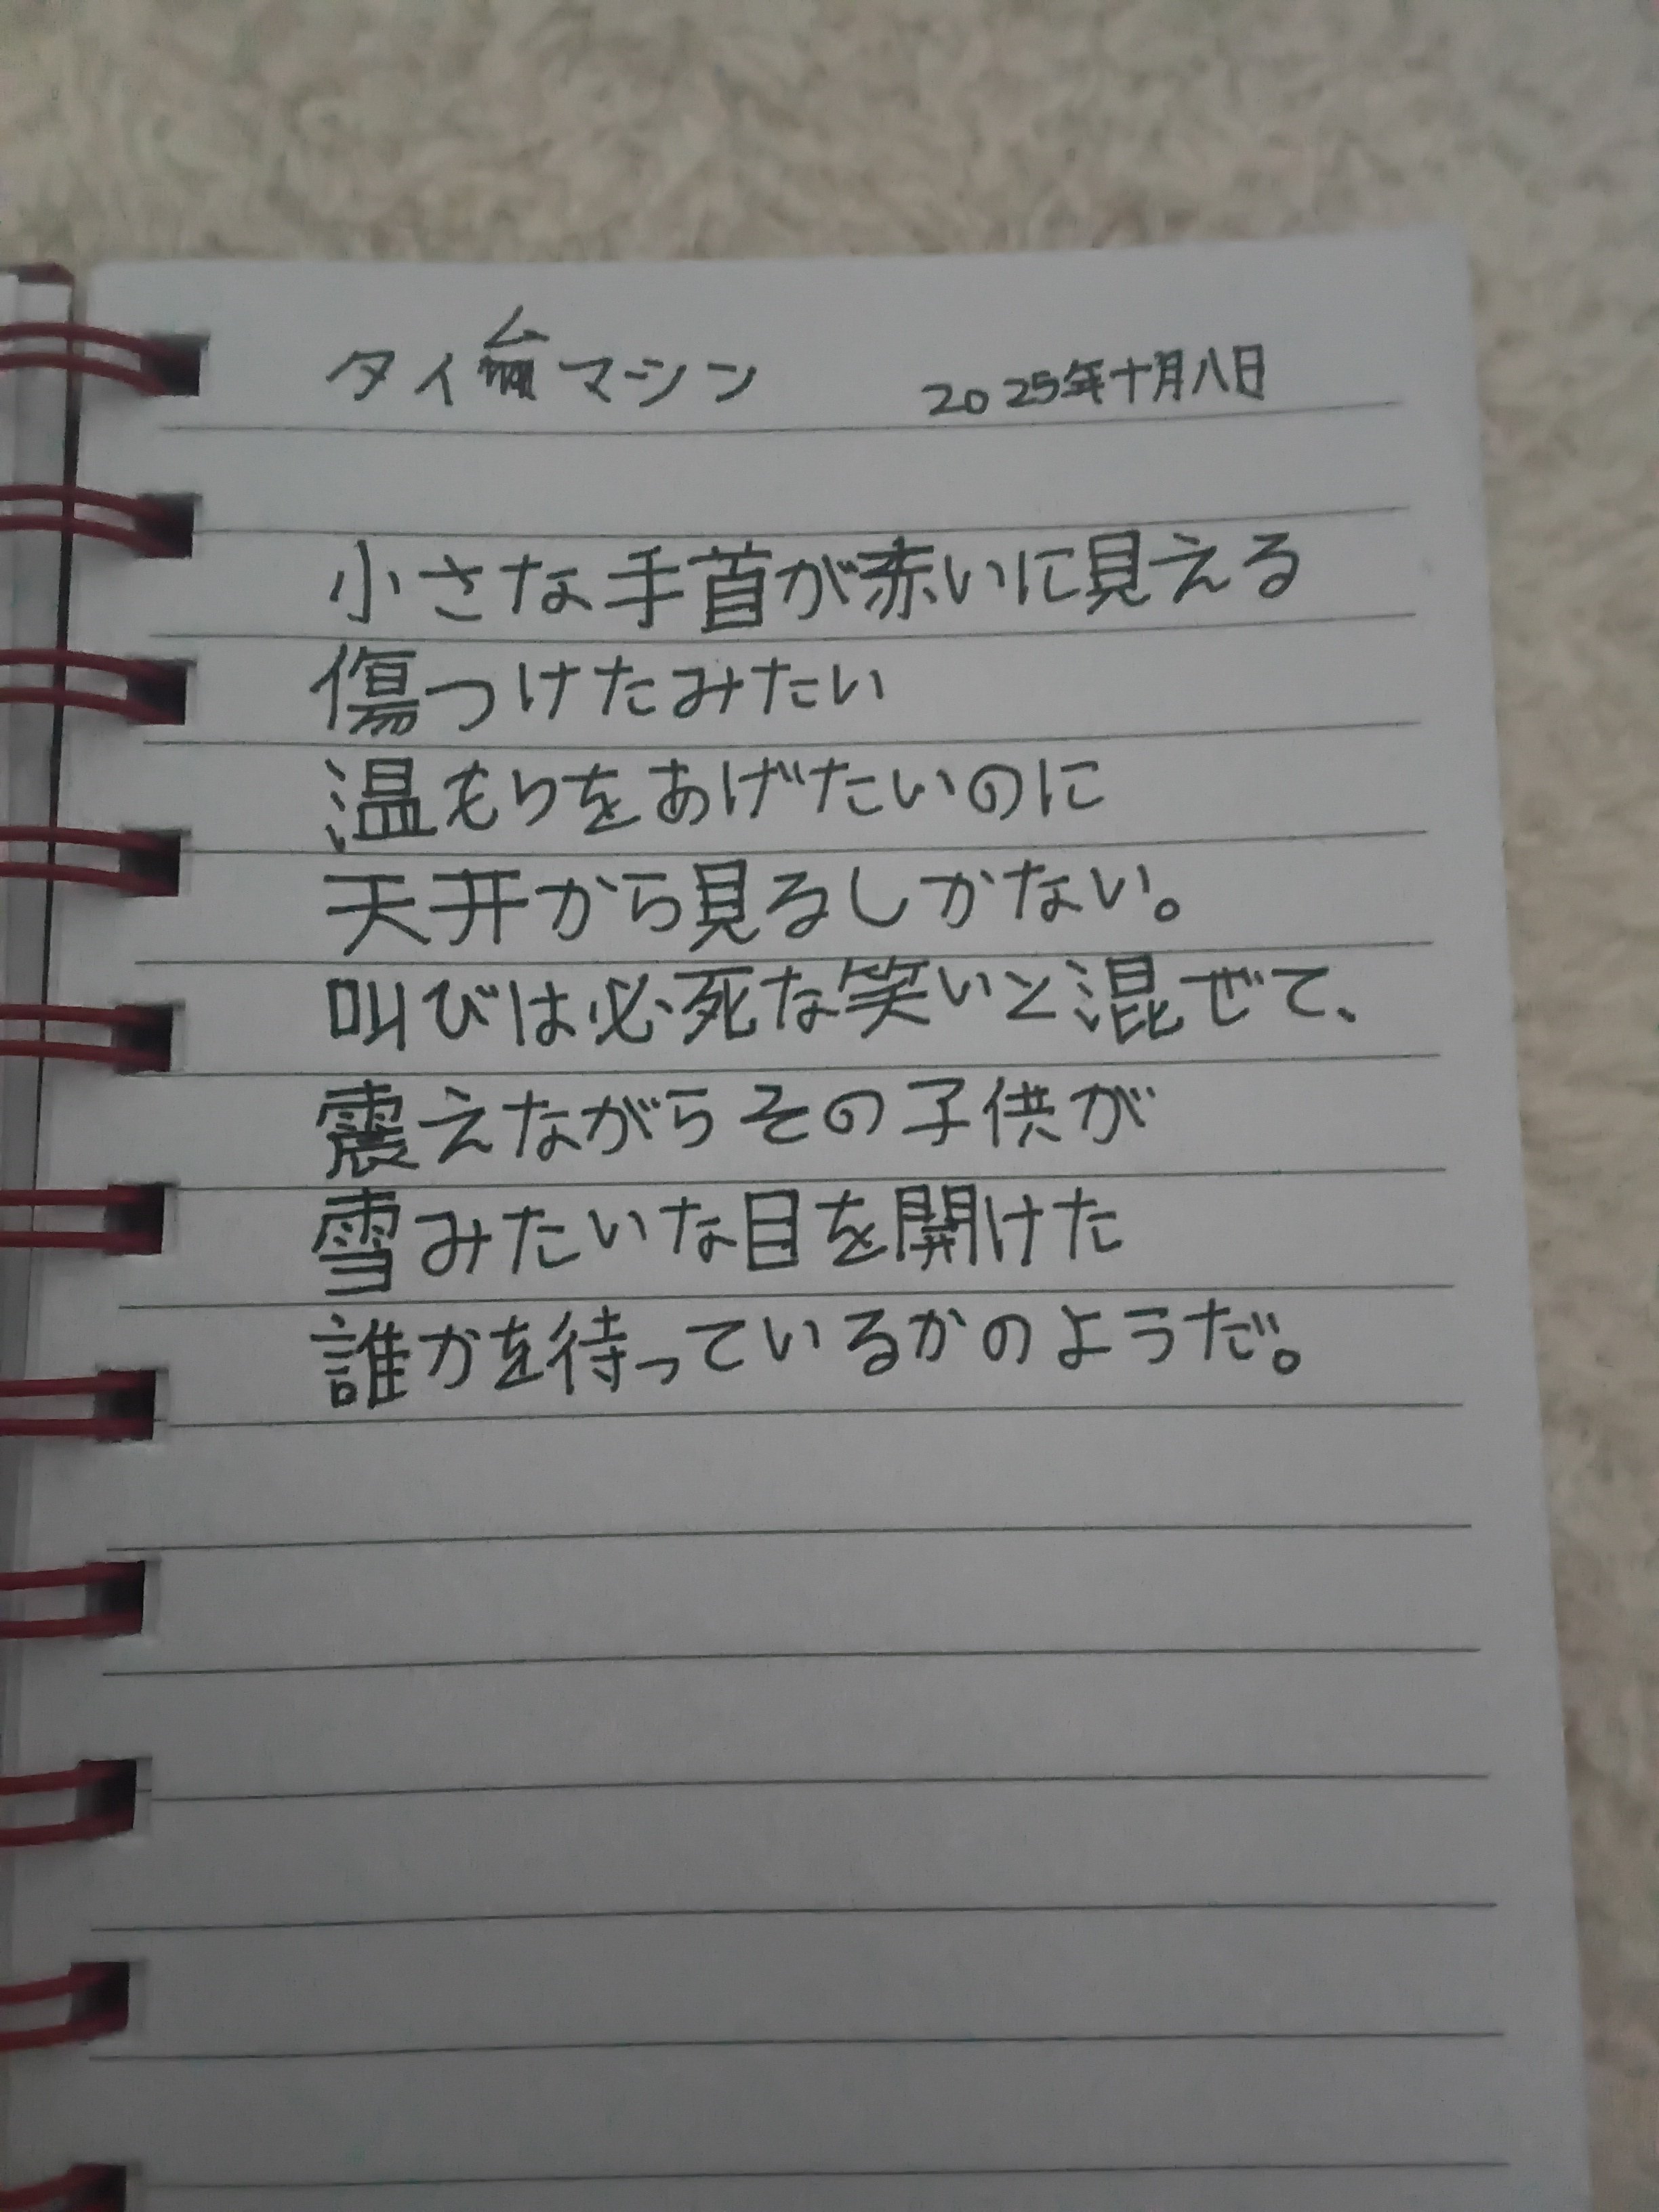 タイムマシン 2025年十月八日
小さな手首が赤いに見える
傷つけたみたい
温もりをあげたいのに
天井から見るしかない。
叫びは必死な笑いと混ぜて、
震えながらその子供が
雪みたいな目を開けた
誰かを待っているかのようだ。